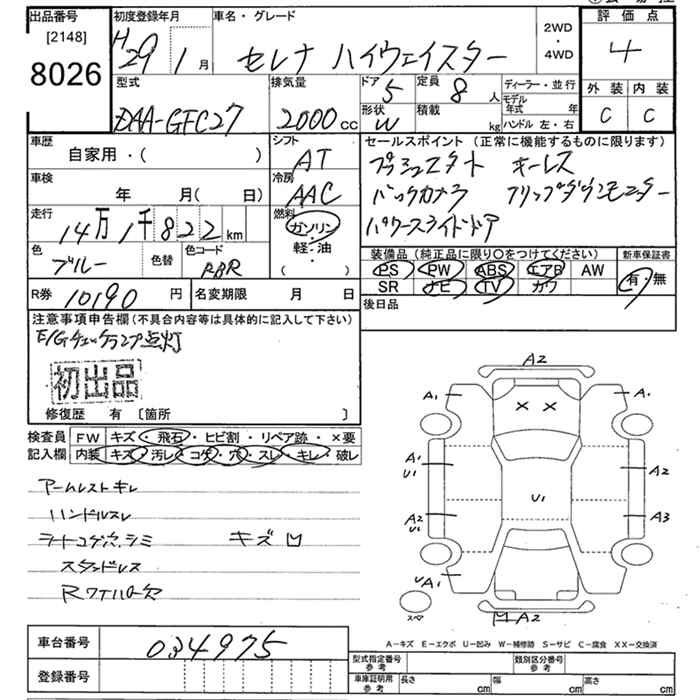 出品番号 初度登録年月 車名・グレード 2WD・4WD 評価点
[2148]
8026 H29 1月 セレナ ハイウェイスター 4
型式 排気量 ドア 5 定員 8人 ディーラー・並行 外装 内装
DAA-GFC27 2000cc 形状 W 積載 kg モデル年式 年 C C
ハンドル 左・右
車歴 自家用・( ) シフト AT セールスポイント (正常に機能するものに限ります)
プッシュスタート キーレス
車検 年 月( 日) 冷房 AAC バックカメラ フリップダウンモニター
走行 14万1千822km 燃料 ガソリン・軽・油・( ) パワースライドドア
色 ブルー 色替 色コード RBR
装備品 (純正品に限り○をつけてください) 新車保証書
PS PW ABS エアB AW 有・無
SR ナビ TV カワ
R券 10190円 名変期限 月 日 後日品
注意事項申告欄(不具合内容等は具体的に記入して下さい)
E/Gチェックランプ点灯
初出品
修復歴 有 〔箇所 〕
検査員記入欄 FW キズ・飛石・ヒビ割・リペア跡・×要
内装 キズ・汚レ・コゲ・穴・スレ・キレ・破レ
アームレストキレ
ハンドルスレ
シートコゲ穴、シミ キズ凹
Rワイパー欠
A2
A1 × × A1
A1 U1 A2
U1
A2 U1 A3
UA1
スペア 凹A2
A-キズ E-エクボ U-凹み W-補修跡 S-サビ C-腐食 XX-交換済
車台番号 034975
登録番号
型式指定番号 参考 類別区分番号 参考
車庫証明用 参考 長さ cm 幅 cm 高さ cm